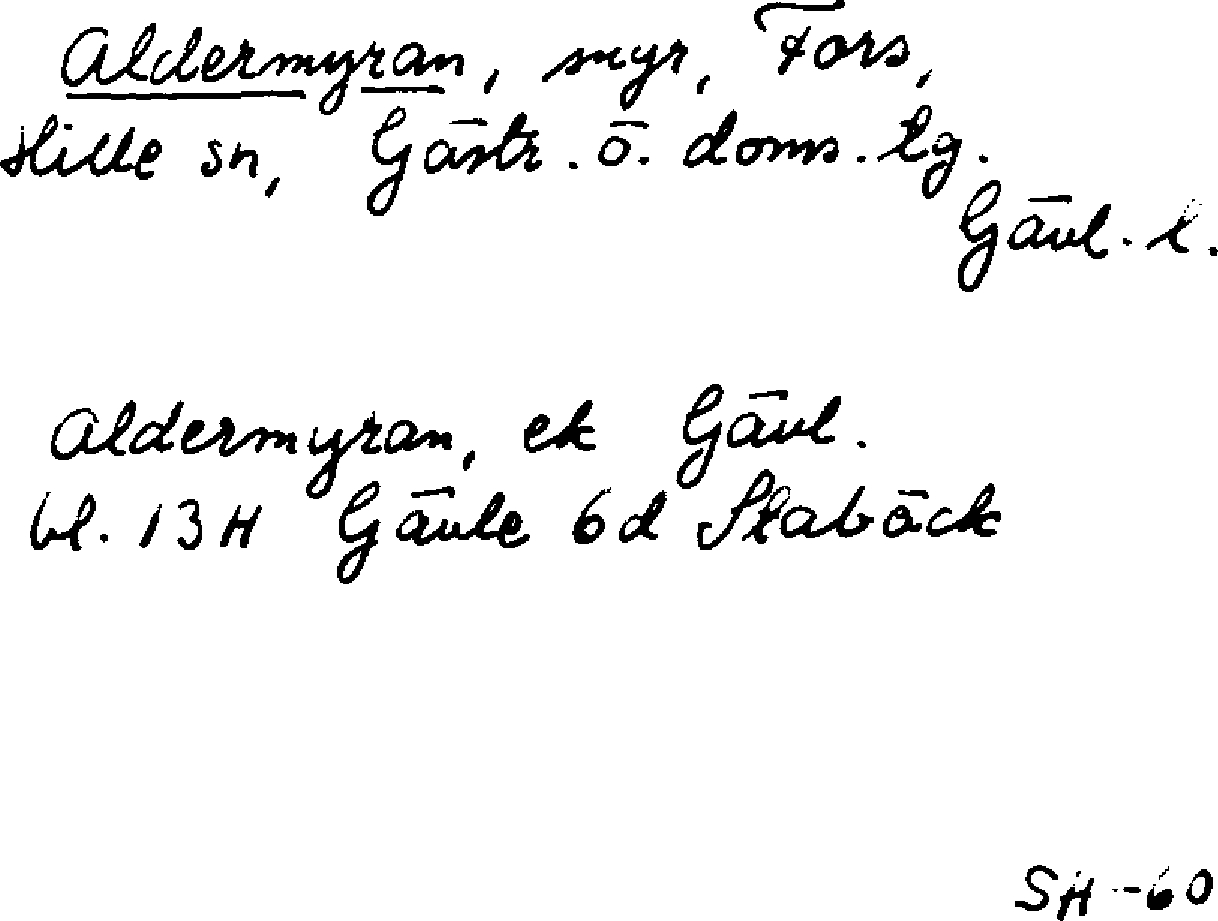 Aldermyran, myr, Fors,
Hille sn, Gästr. ö. doms. lg.
Gävl. l.
Aldermyran, ek Gävl.
bl. 13H Gävle 6d Skabäck
SH -60